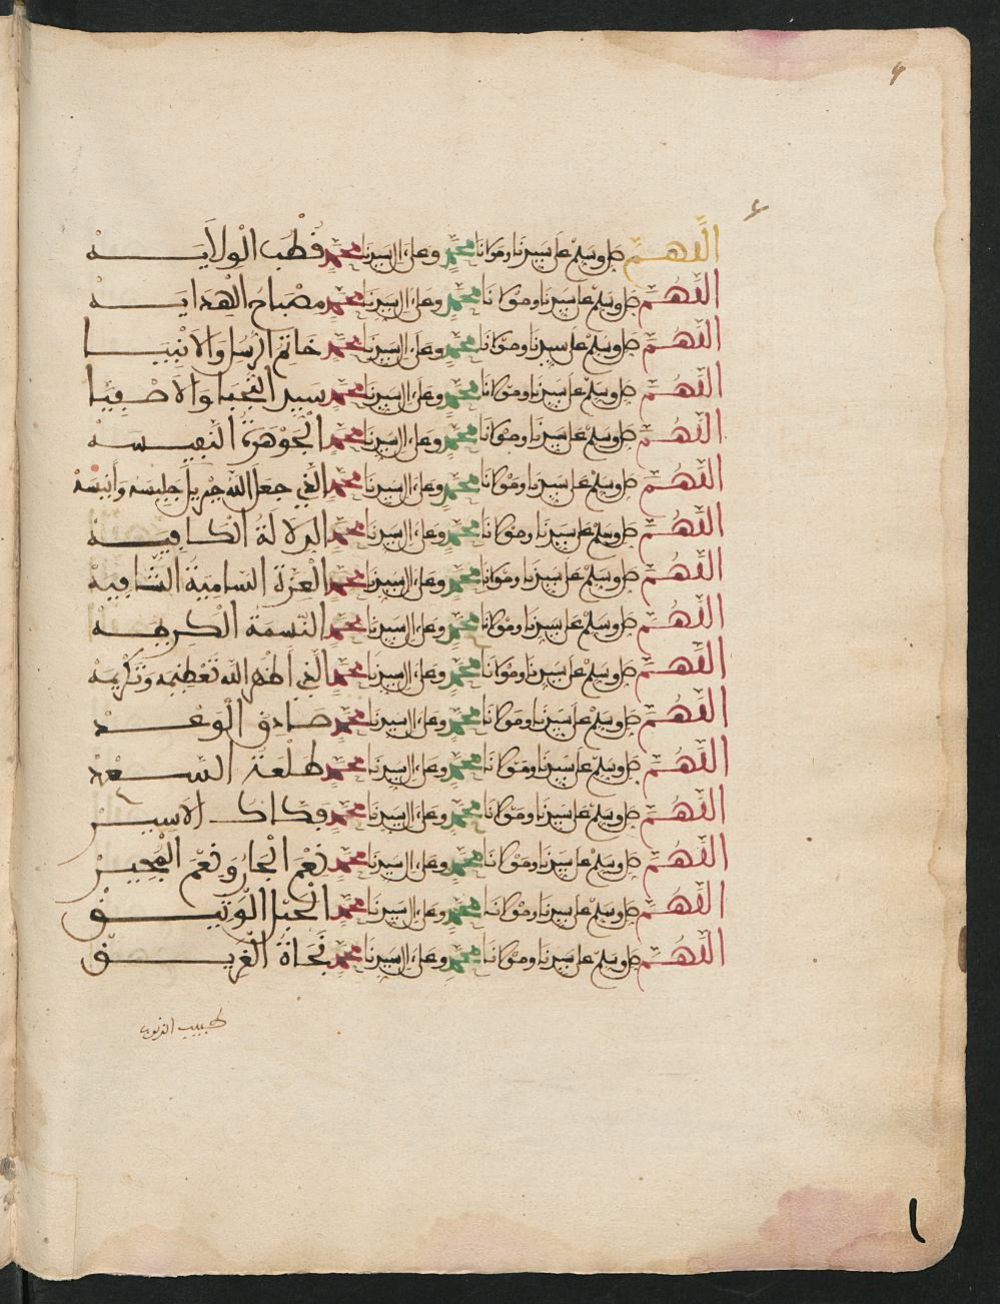 اللهم صل وسلم على سيدنا ومولانا محمد وعلى ءال سيدنا محمد قطب الولايه
اللهم صل وسلم على سيدنا ومولانا محمد وعلى ءال سيدنا محمد مصباح الهدايه
اللهم صل وسلم على سيدنا ومولانا محمد وعلى ءال سيدنا محمد خاتم الرسل والانبيا
اللهم صل وسلم على سيدنا ومولانا محمد وعلى ءال سيدنا محمد سيد النجبا والاصفيا
اللهم صل وسلم على سيدنا ومولانا محمد وعلى ءال سيدنا محمد الجوهرة النفيسه
اللهم صل وسلم على سيدنا ومولانا محمد وعلى ءال سيدنا محمد الذي جعل الله جبريل جليسه وأنيسه
اللهم صل وسلم على سيدنا ومولانا محمد وعلى ءال سيدنا محمد الدلالة الكافية
اللهم صل وسلم على سيدنا ومولانا محمد وعلى ءال سيدنا محمد العزة السامية الشافية
اللهم صل وسلم على سيدنا ومولانا محمد وعلى ءال سيدنا محمد النسمة الكريمه
اللهم صل وسلم على سيدنا ومولانا محمد وعلى ءال سيدنا محمد الذي أظهر الله تعظيمه وتكريمه
اللهم صل وسلم على سيدنا ومولانا محمد وعلى ءال سيدنا محمد صادق الوعد
اللهم صل وسلم على سيدنا ومولانا محمد وعلى ءال سيدنا محمد طلعة السعد
اللهم صل وسلم على سيدنا ومولانا محمد وعلى ءال سيدنا محمد فكاك الاسير
اللهم صل وسلم على سيدنا ومولانا محمد وعلى ءال سيدنا محمد نعم الجار ونعم المجير
اللهم صل وسلم على سيدنا ومولانا محمد وعلى ءال سيدنا محمد الحبل الوثيق
اللهم صل وسلم على سيدنا ومولانا محمد وعلى ءال سيدنا محمد نجاة الغريق